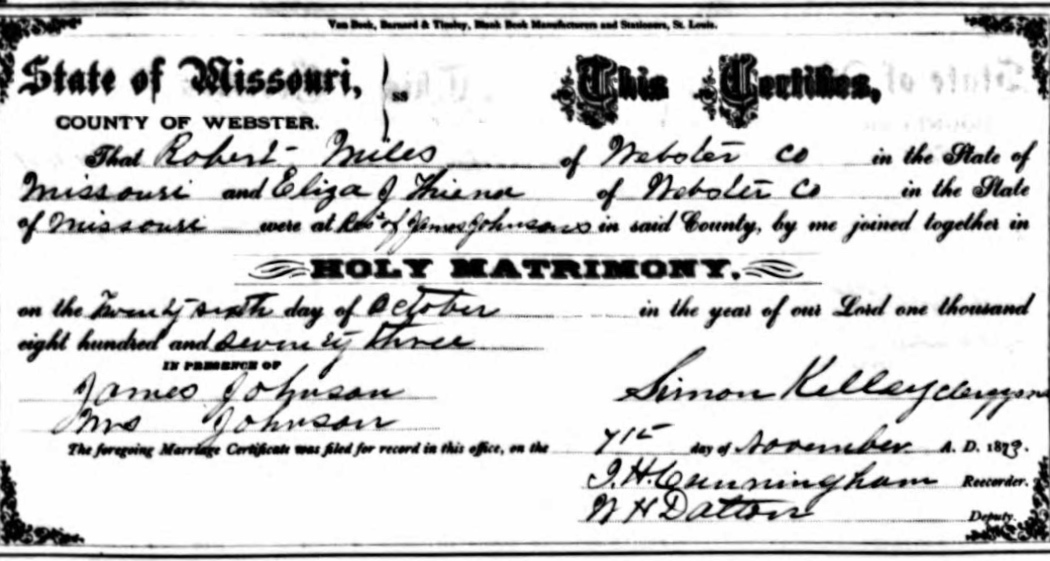 Van Beek, Barnard & Tinsley, Blank Book Manufacturers and Stationers, St. Louis.
State of Missouri, } ss This Certifies,
COUNTY OF WEBSTER.
That Robert Miles of Webster Co in the State of
Missouri and Eliza J of Webster Co in the State
of Missouri were at Res of James Johnsons in said County, by me joined together in
HOLY MATRIMONY,
on the Twenty sixth day of October in the year of our Lord one thousand
eight hundred and seventy three
IN PRESENCE OF
James Johnson Simon Kelley
Mrs Johnson
The foregoing Marriage Certificate was filed for record in this office, on the day of November A. D. 1873.
J. H. Cunningham Recorder.
W H Dalton Deputy.